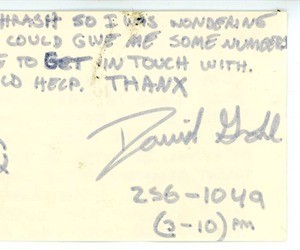 THRASH SO I WAS WONDERING
COULD GIVE ME SOME NUMBERS
TO GET IN TOUCH WITH.
HELP. THANX
David
256-1049
(3-10) PM